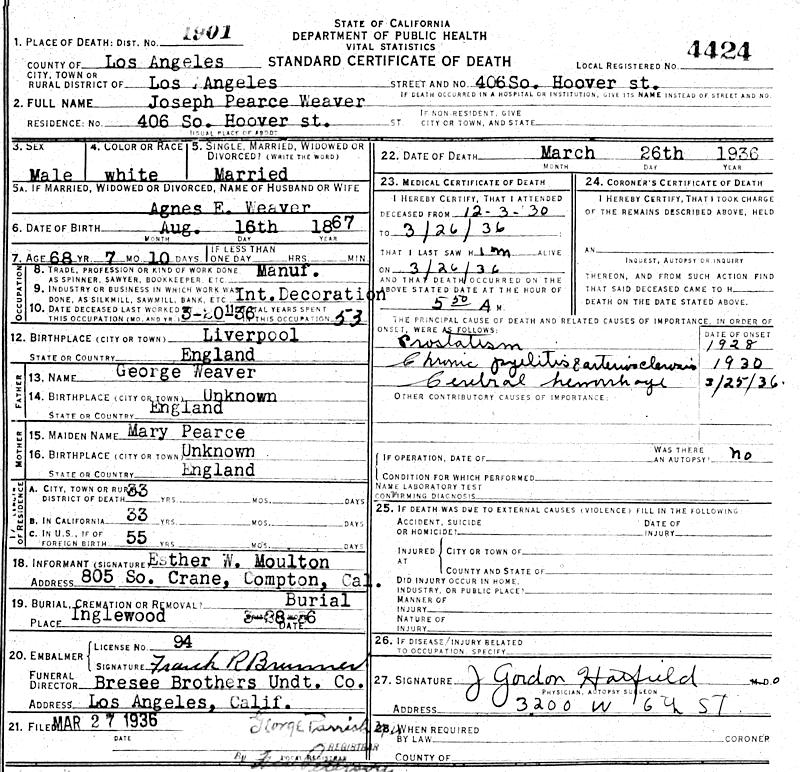 STATE OF CALIFORNIA
DEPARTMENT OF PUBLIC HEALTH
VITAL STATISTICS
STANDARD CERTIFICATE OF DEATH
1. PLACE OF DEATH: DIST. NO. 1901
LOCAL REGISTERED NO. 4424
COUNTY OF Los Angeles
CITY, TOWN OR
RURAL DISTRICT OF Los Angeles STREET AND NO. 406 So. Hoover st.
IF DEATH OCCURRED IN A HOSPITAL OR INSTITUTION, GIVE ITS NAME INSTEAD OF STREET AND NO.
2. FULL NAME Joseph Pearce Weaver
RESIDENCE: NO. 406 So. Hoover st. ST. IF NON-RESIDENT, GIVE CITY OR TOWN, AND STATE
USUAL PLACE OF ABODE
3. SEX Male
4. COLOR OR RACE white
5. SINGLE, MARRIED, WIDOWED OR DIVORCED? (WRITE THE WORD) Married
5A. IF MARRIED, WIDOWED OR DIVORCED, NAME OF HUSBAND OR WIFE
Agnes E. Weaver
6. DATE OF BIRTH Aug. 16th 1867
MONTH DAY YEAR
7. AGE 68 YR. 7 MO. 10 DAYS IF LESS THAN ONE DAY HRS. MIN.
OCCUPATION
8. TRADE, PROFESSION OR KIND OF WORK DONE AS SPINNER, SAWYER, BOOKKEEPER, ETC. Manuf.
9. INDUSTRY OR BUSINESS IN WHICH WORK WAS DONE, AS SILKMILL, SAWMILL, BANK, ETC. Int.Decoration
10. DATE DECEASED LAST WORKED AT THIS OCCUPATION (MO. AND YR.) 3-20-36 11. TOTAL YEARS SPENT IN THIS OCCUPATION 53
12. BIRTHPLACE (CITY OR TOWN) Liverpool
STATE OR COUNTRY England
FATHER
13. NAME George Weaver
14. BIRTHPLACE (CITY OR TOWN) Unknown
STATE OR COUNTRY England
MOTHER
15. MAIDEN NAME Mary Pearce
16. BIRTHPLACE (CITY OR TOWN) Unknown
STATE OR COUNTRY England
OF RESIDENCE
A. CITY, TOWN OR RURAL DISTRICT OF DEATH 33 YRS. MOS. DAYS
B. IN CALIFORNIA 33 YRS. MOS. DAYS
C. IN U.S., IF OF FOREIGN BIRTH 55 YRS. MOS. DAYS
18. INFORMANT (SIGNATURE) Esther W. Moulton
ADDRESS 805 So. Crane, Compton, Cal.
19. BURIAL, CREMATION OR REMOVAL? Burial
PLACE Inglewood DATE
20. EMBALMER LICENSE NO. 94
SIGNATURE Frank R Brunner
FUNERAL DIRECTOR Bresee Brothers Undt. Co.
ADDRESS Los Angeles, Calif.
21. FILED MAR 27 1936 George Parrish
DATE REGISTRAR
By
22. DATE OF DEATH March 26th 1936
MONTH DAY YEAR
23. MEDICAL CERTIFICATE OF DEATH
I HEREBY CERTIFY, THAT I ATTENDED
DECEASED FROM 12-3-'30
TO 3/26/36
THAT I LAST SAW Him ALIVE
ON 3/26/36
AND THAT DEATH OCCURRED ON THE
ABOVE STATED DATE AT THE HOUR OF
5 50 A M.
24. CORONER'S CERTIFICATE OF DEATH
I HEREBY CERTIFY, THAT I TOOK CHARGE
OF THE REMAINS DESCRIBED ABOVE, HELD
AN
INQUEST, AUTOPSY OR INQUIRY
THEREON, AND FROM SUCH ACTION FIND
THAT SAID DECEASED CAME TO H
DEATH ON THE DATE STATED ABOVE.
THE PRINCIPAL CAUSE OF DEATH AND RELATED CAUSES OF IMPORTANCE, IN ORDER OF
ONSET, WERE AS FOLLOWS: DATE OF ONSET
Prostatism 1928
Chronic pyelitis & arteriosclerosis 1930
Cerebral hemorrhage 3/25/36.
OTHER CONTRIBUTORY CAUSES OF IMPORTANCE:
IF OPERATION, DATE OF WAS THERE AN AUTOPSY? no
CONDITION FOR WHICH PERFORMED
NAME LABORATORY TEST
CONFIRMING DIAGNOSIS
25. IF DEATH WAS DUE TO EXTERNAL CAUSES (VIOLENCE) FILL IN THE FOLLOWING:
ACCIDENT, SUICIDE OR HOMICIDE? DATE OF INJURY
INJURED AT CITY OR TOWN OF
COUNTY AND STATE OF
DID INJURY OCCUR IN HOME,
INDUSTRY, OR PUBLIC PLACE?
MANNER OF INJURY
NATURE OF INJURY
26. IF DISEASE/INJURY RELATED
TO OCCUPATION, SPECIFY
27. SIGNATURE J Gordon Hatfield M.D.
PHYSICIAN, AUTOPSY SURGEON
ADDRESS 3200 W 6th ST
28. WHEN REQUIRED BY LAW CORONER
COUNTY OF